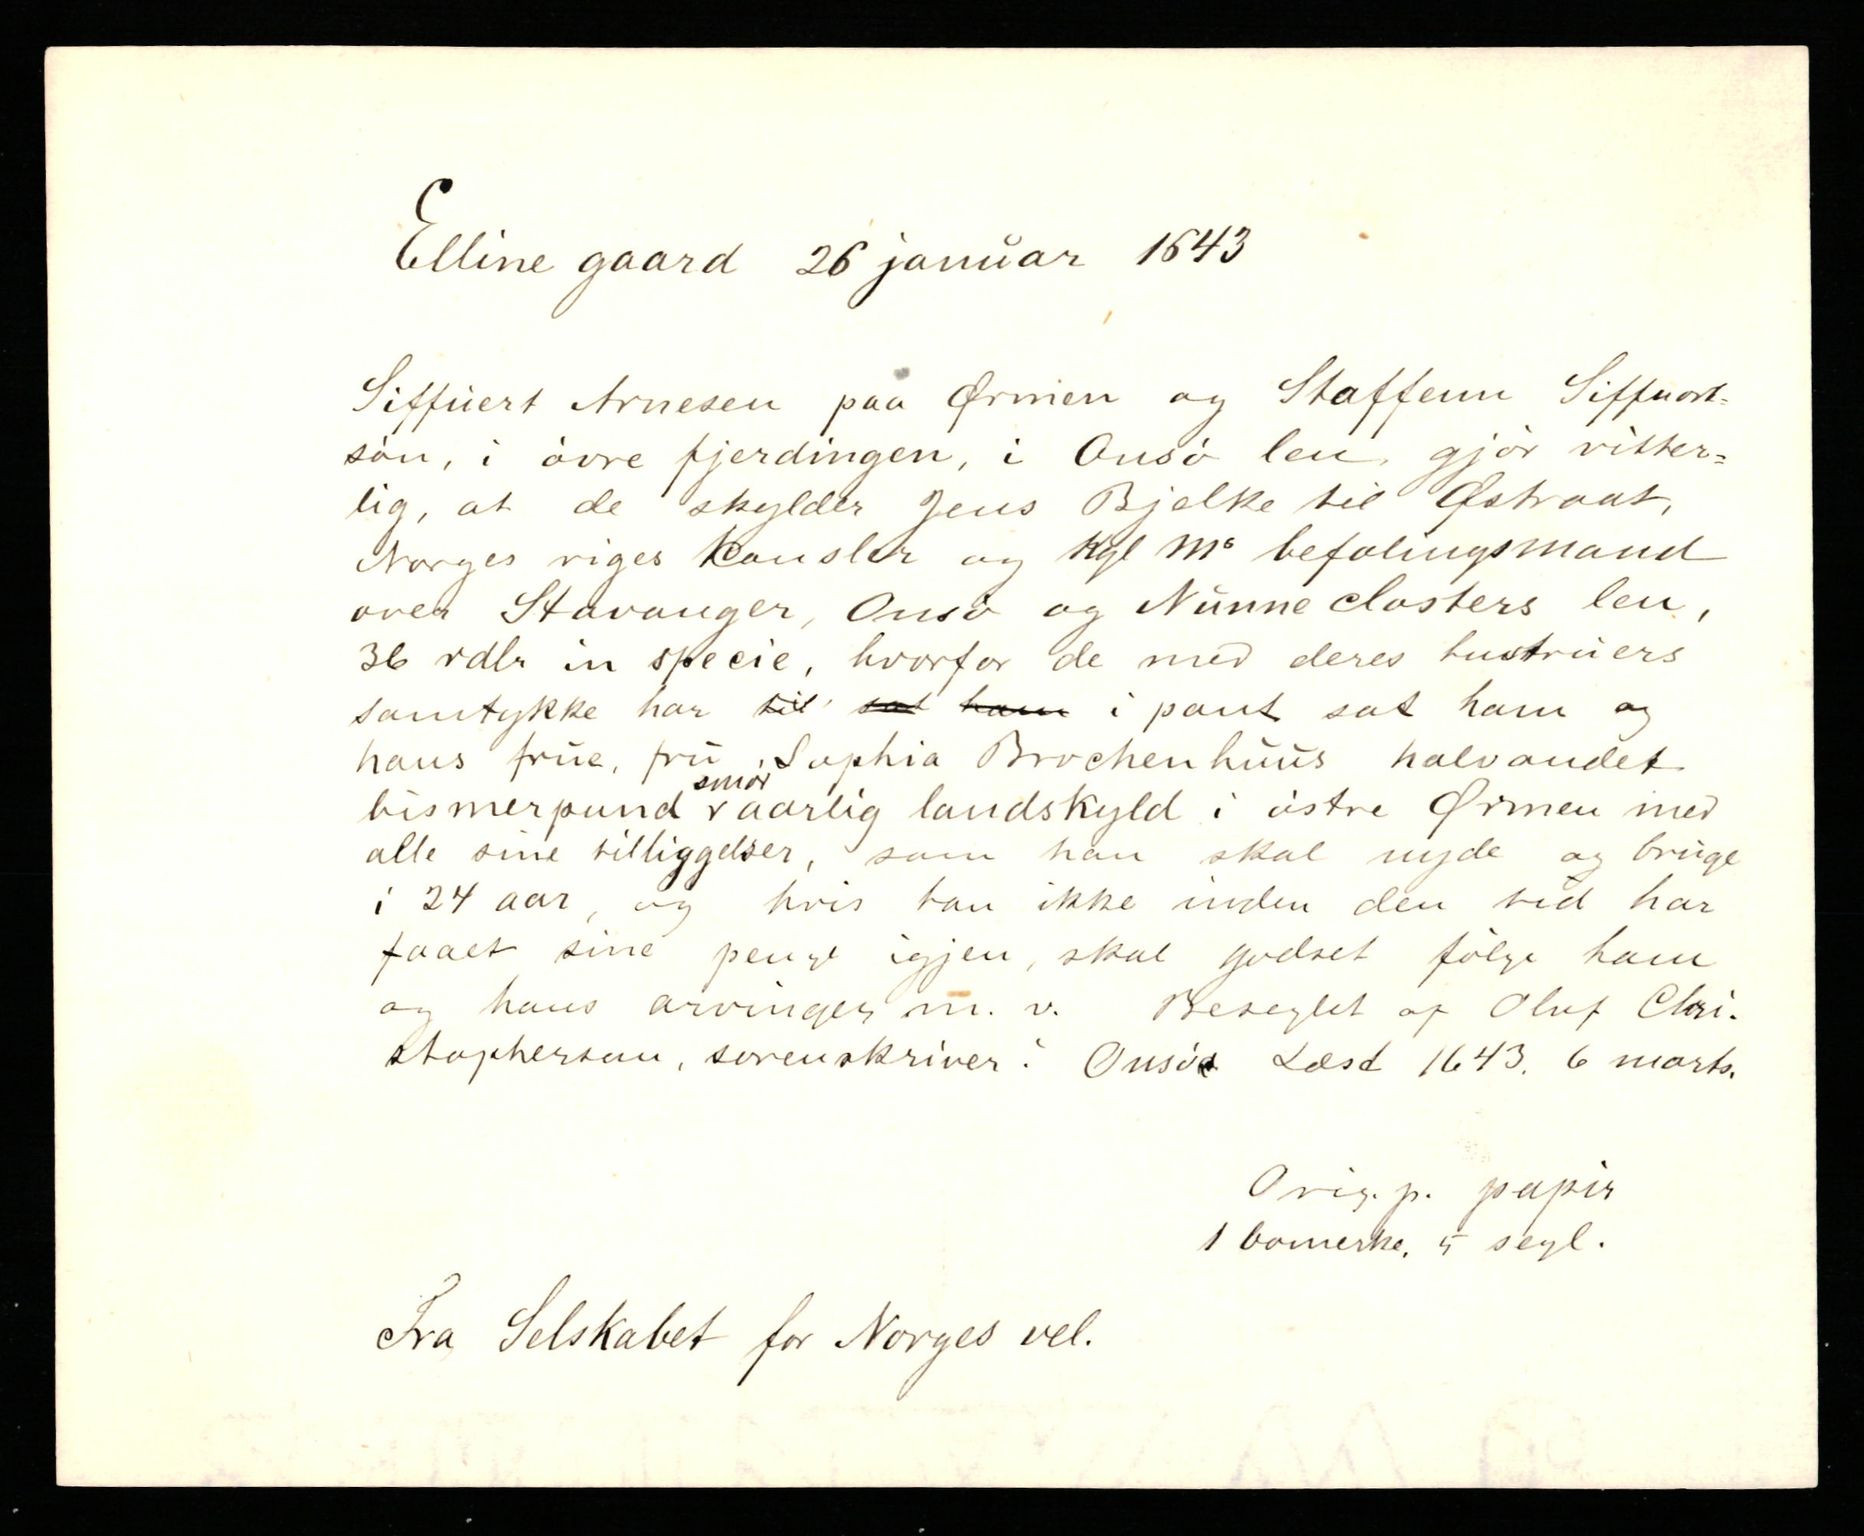 Elline gaard 26 januar 1643
Siffuert Arnesen paa Ørmen og Staffenn Siffuort=
sön, i övre fjerdingen, i Onsö len, gjör vitter=
lig, at de skylder Jens Bjelke til Østraat,
Norges riges kansler og kgl Ms befalingsmand
over Stavanger, Onsö og Nunne closters len,
36 rdlr in specie, hvorfor de med deres hustruers
samtykke har til sat ham i pant sat ham og
hans frue, fru Sophia Brochenhuus halvandet
bismerpund smör aarlig landskyld i östre Ørmen med
alle sine tilliggelser, som han skal nyde og bruge
i 24 aar, og hvis han ikke inden den tid har
faaet sine penge igjen, skal godset fölge ham
og hans arvinger, m. v. Beseglet af Oluf Chri-
stophersøn, sorenskriver i Onsö. Læst 1643. 6 marts.
Orig. p. papir
1 bomerke, 5 segl.
Fra Selskabet for Norges vel.